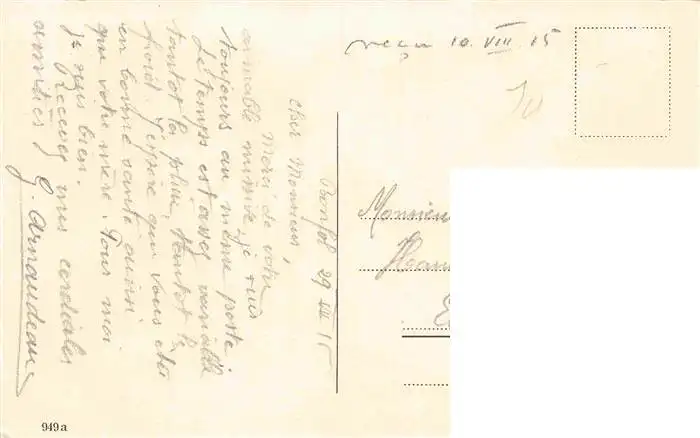 reçu 10. VIII. 15
Bonfol 29 VII 15
cher Monsieur,
Merci de votre
aimable missive, je suis
toujours au même poste.
Le temps est assez variable
tantôt la pluie, tantôt le
froid. J'espère que vous êtes
en bonne santé ainsi
que votre mère. Pour moi
je vais bien.
Recevez mes cordiales
amitiés
G. Arnaudeau
Monsieu
949a